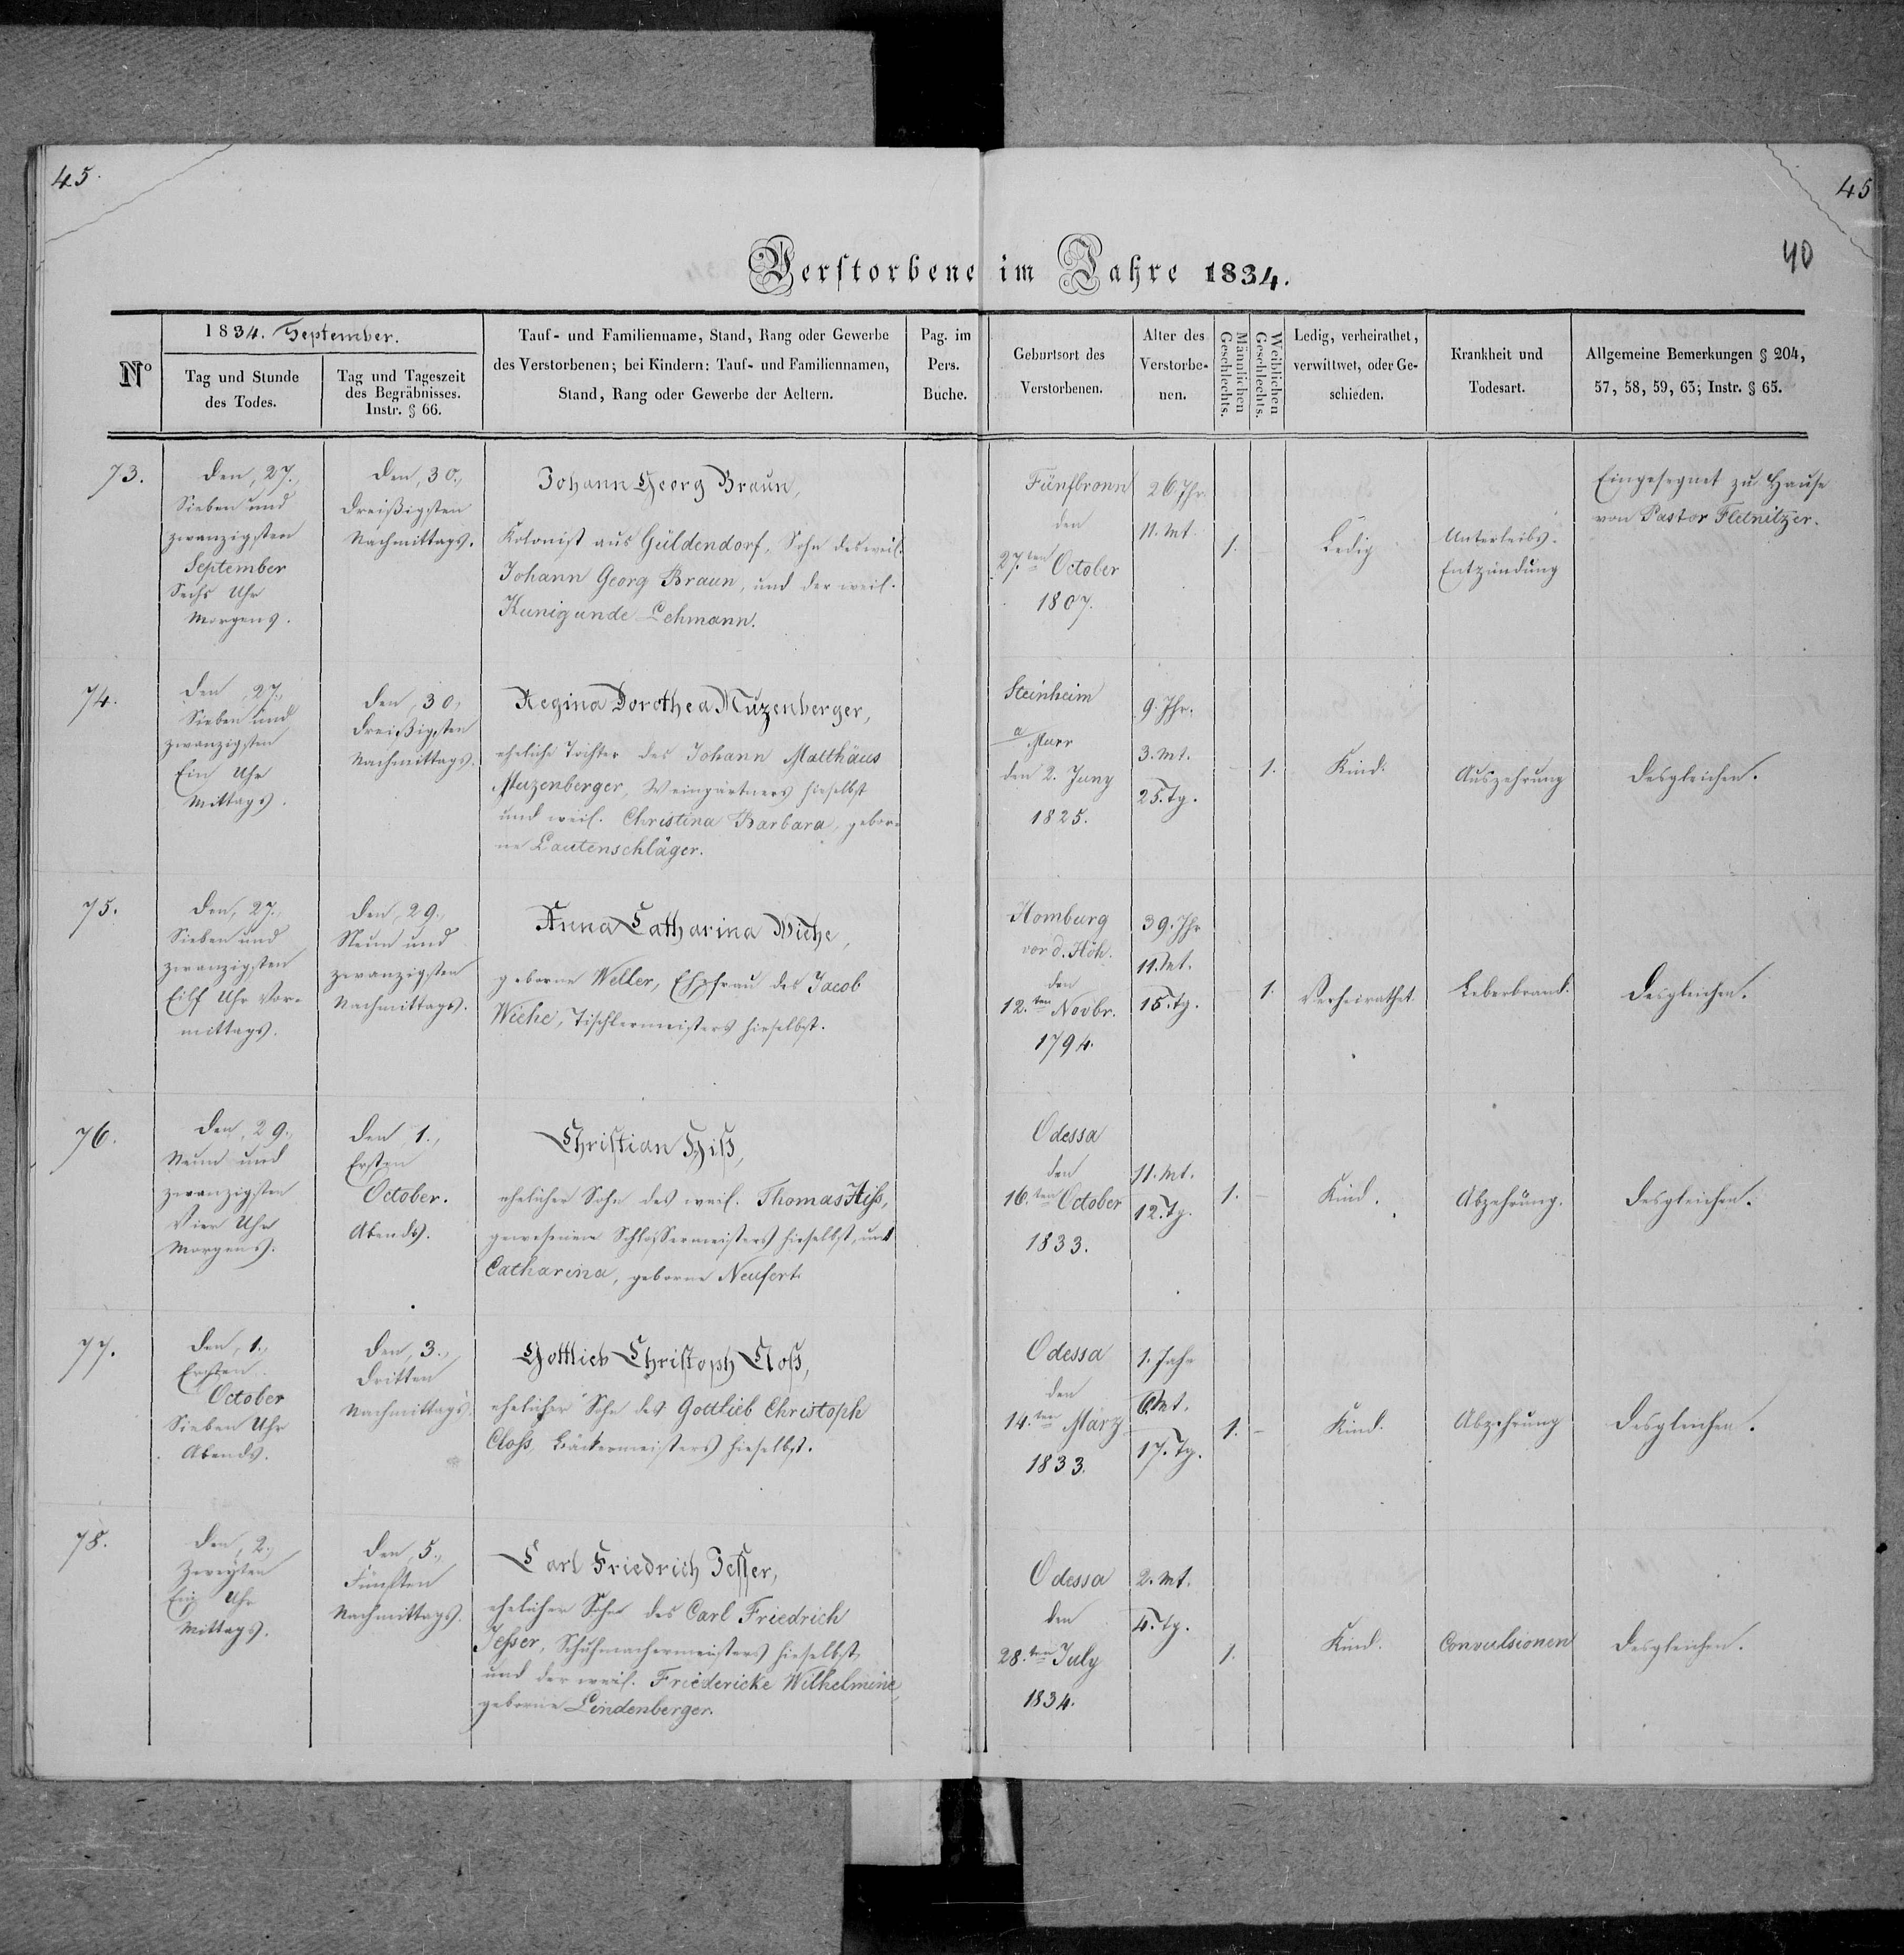 45.
45
40
Verstorbene im Jahre 1834.
No
1834. September.
Tag und Stunde
des Todes.
Tag und Tageszeit
des Begräbnisses.
Instr. § 66.
Tauf- und Familienname, Stand, Rang oder Gewerbe
des Verstorbenen; bei Kindern: Tauf- und Familiennamen,
Stand, Rang oder Gewerbe der Aeltern.
Pag. im
Pers.
Buche.
Geburtsort des
Verstorbenen.
Alter des
Verstorbe-
nen.
Männlichen
Geschlechts.
Weiblichen
Geschlechts.
Ledig, verheirathet,
verwittwet, oder Ge-
schieden.
Krankheit und
Todesart.
Allgemeine Bemerkungen § 204,
57, 58, 59, 63; Instr. § 65.
73.
den, 27.,
Sieben und
zwanzigsten
September
Sechs Uhr
Morgens.
den, 30.,
dreißigsten
Nachmittags.
Johann Georg Braun,
Kolonist aus Güldendorf, Sohn des weil.
Johann Georg Braun, und der weil.
Kunigunde Lehmann.
Fünfbronn
den
27.ten October
1807.
26. Jhr.
11. Mt.
1.
Ledig
Unterleibs-
Entzündung
Eingesegnet zu Hause
von Pastor Fletnitzer.
74.
den, 27.,
Sieben und
zwanzigsten
Ein Uhr
Mittags.
den, 30.,
dreißigsten
Nachmittags.
Regina Dorothea Muzenberger,
eheliche Tochter des Johann Matthäus
Muzenberger, Weingärtners hieselbst
und weil. Christina Barbara, gebor-
ne Lautenschläger.
Steinheim
a Murr
den 2. Juny
1825.
9. Jhr.
3. Mt.
25. Tg.
1.
Kind.
Auszehrung
desgleichen.
75.
den, 27.,
Sieben und
zwanzigsten
Eilf Uhr Vor-
mittags.
den, 29.,
Neun und
zwanzigsten
Nachmittags.
Anna Catharina Wiche,
geborne Weller, Ehefrau des Jacob
Wiche, Tischlermeisters hieselbst.
Homburg
vor d. Höh.
den
12.ten Novbr.
1794.
39. Jhr
11. Mt.
15. Tg.
1.
Verheirathet.
Leberbrand.
desgleichen.
76.
den, 29.,
Neun und
zwanzigsten
Vier Uhr
Morgens.
den, 1.,
Ersten
October.
Abends.
Christian Hiß,
ehelicher Sohn des weil. Thomas Hiß,
gewesenen Schlossermeisters hieselbst, und
Catharina, geborne Neufert.
Odessa
den
16.ten October
1833.
11. Mt.
12. Tg.
1.
Kind.
Abzehrung.
desgleichen.
77.
den, 1.,
Ersten
October
Sieben Uhr
Abends.
den, 3.,
dritten
Nachmittags.
Gottlieb Christoph Cloß,
ehelicher Sohn des Gottlieb Christoph
Closs, Bäckermeisters hieselbst.
Odessa
den
14.ten März
1833.
1. Jahr
6. Mt.
17. Tg.
1.
Kind.
Abzehrung
desgleichen.
78.
den, 2.,
Zweyten
Ein Uhr
Mittags.
den, 5.,
Fünften
Nachmittags.
Carl Friedrich Jesser,
ehelicher Sohn des Carl Friedrich
Jesser, Schuhmachermeisters hieselbst,
und der weil. Friedericke Wilhelmine,
geborne Lindenberger.
Odessa
den
28.ten July
1834.
2. Mt.
4. Tg.
1.
Kind.
Convulsionen
desgleichen.